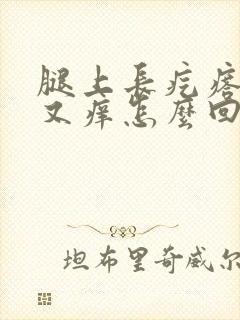 腿上長疙瘩
又癢怎麼回
坦布里奇威尔